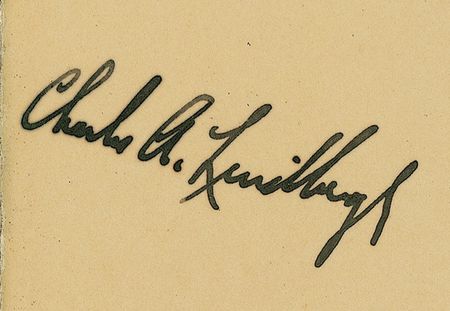 Charles A. Lindbergh